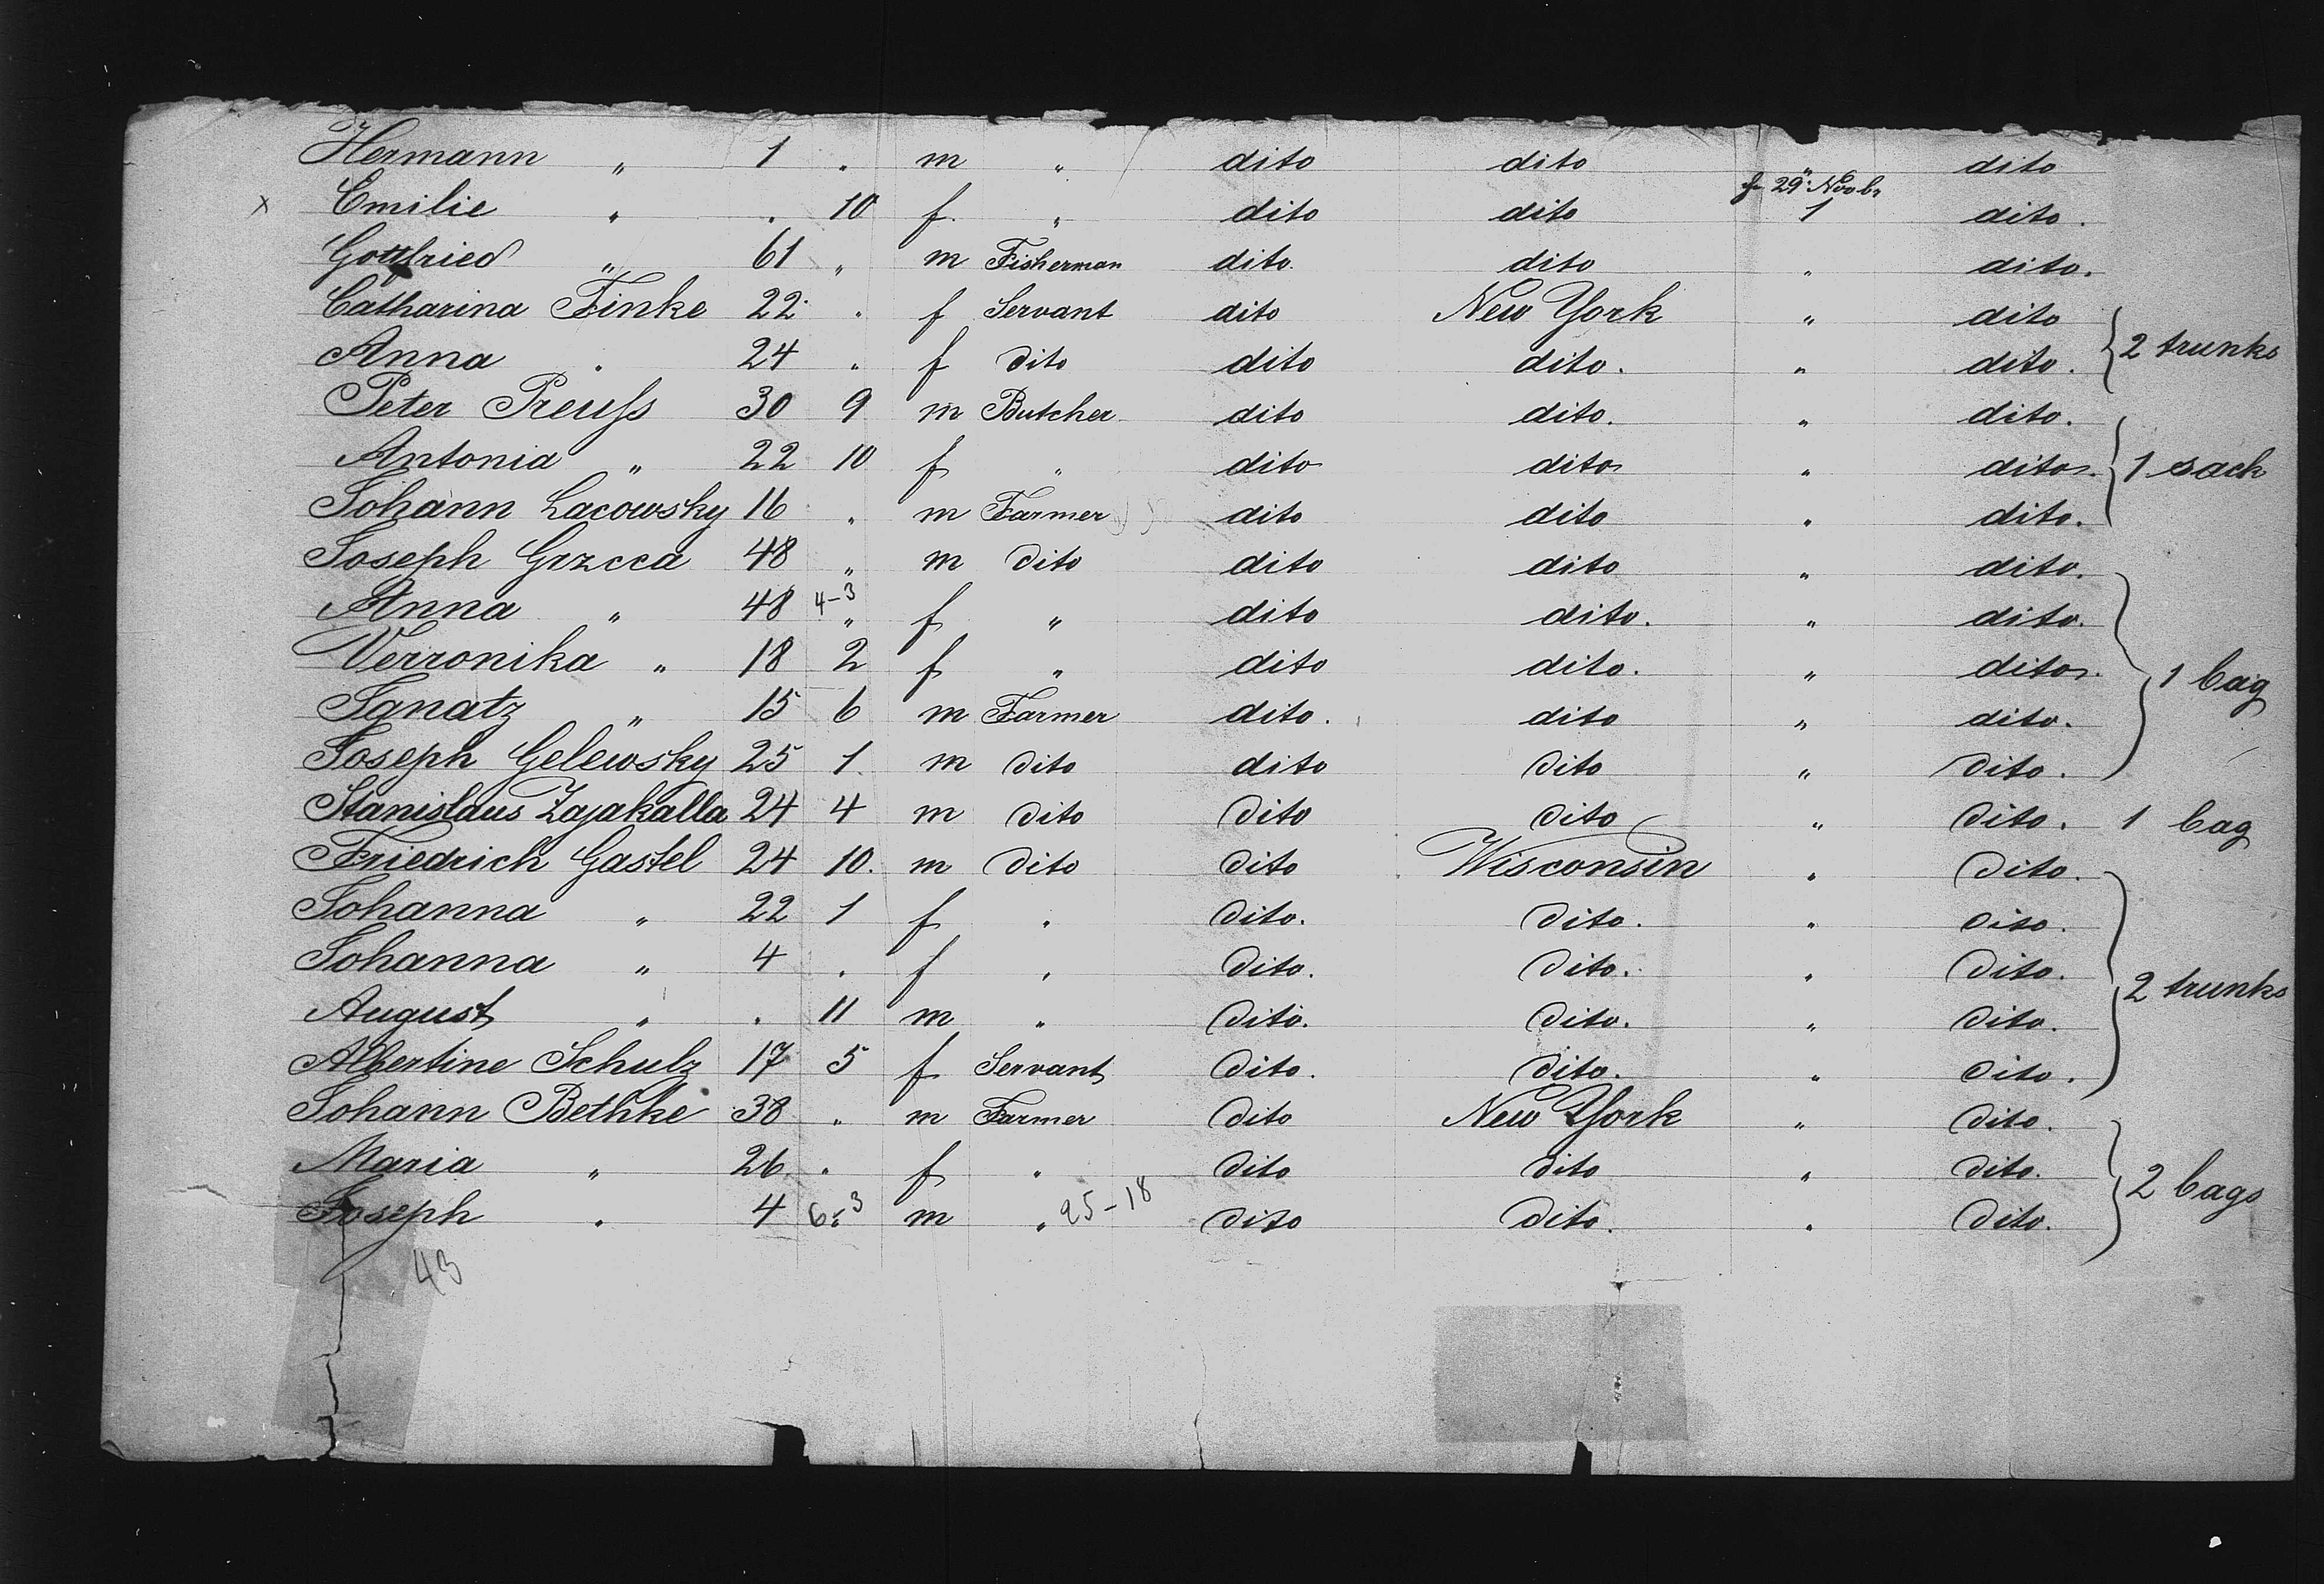 Hermann " 1 " m " dito dito " dito
f 29. Novbr
x Emilie " . 10 f. " dito dito 1 dito.
Gottfried " 61 " m Fisherman dito. dito " dito.
Catharina Finke 22 " f Servant dito New York " dito
Anna " 24 " f dito dito dito. " dito. 2 trunks
Peter Preuſs 30 9 m Butcher dito dito. " dito.
Antonia " 22 10 f " dito dito " dito. 1 sack
Johann Lacowsky 16 " m Farmer dito dito " dito.
Joseph Grzcca 48 " m dito dito dito " dito.
Anna " 48 4-3 " f " dito dito. " dito.
Verronika " 18 2 f " dito dito. " dito. 1 bag
Ignatz " 15 6 m Farmer dito. dito " dito.
Joseph Gelewsky 25 1. m dito dito dito " dito.
Stanislaus Zajakalla 24 4 m dito dito dito " dito. 1 bag
Friedrich Gastel 24 10. m dito dito Wisconsin " dito.
Johanna " 22 1 f " dito. dito. " dito.
Johanna " 4 . f " dito. dito. " dito.
August " . 11 m " dito. dito. " dito. 2 trunks
Albertine Schulz 17 5 f Servant dito. dito. " dito.
Johann Bethke 38 " m Farmer dito New York " dito.
Maria " 26 " f " dito dito " dito. 2 bags
Joseph " 4 6-3 m " 25-18 dito dito. " dito.
43